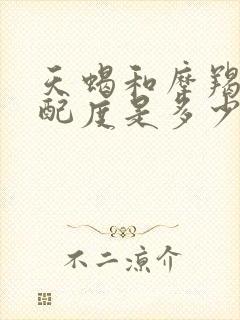 天蝎和摩羯
配度是多少
不二凉介